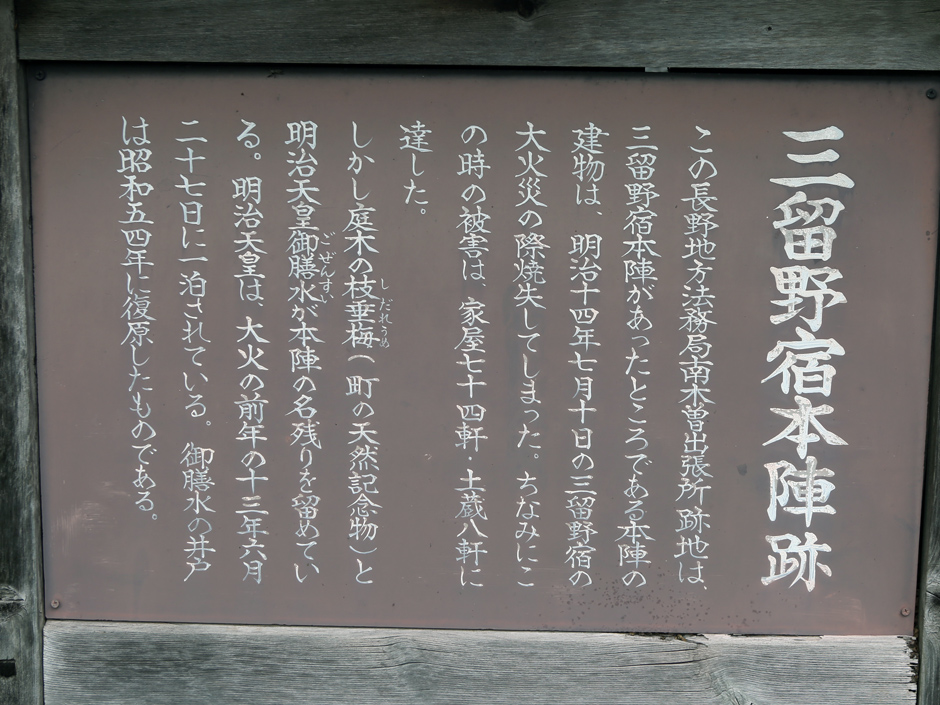 三留野宿本陣跡
この長野地方法務局南木曽出張所跡地は、
三留野宿本陣があったところである本陣の
建物は、明治十四年七月十日の三留野宿の
大火災の際焼失してしまった。ちなみにこ
の時の被害は、家屋七十四軒・土蔵八軒に
達した。
しかし庭木の枝垂梅(町の天然記念物)と
しだれうめ
明治天皇御膳水が本陣の名残りを留めてい
ごぜんすい
る。明治天皇は、大火の前年の十三年六月
二十七日に一泊されている。御膳水の井戸
は昭和五四年に復原したものである。